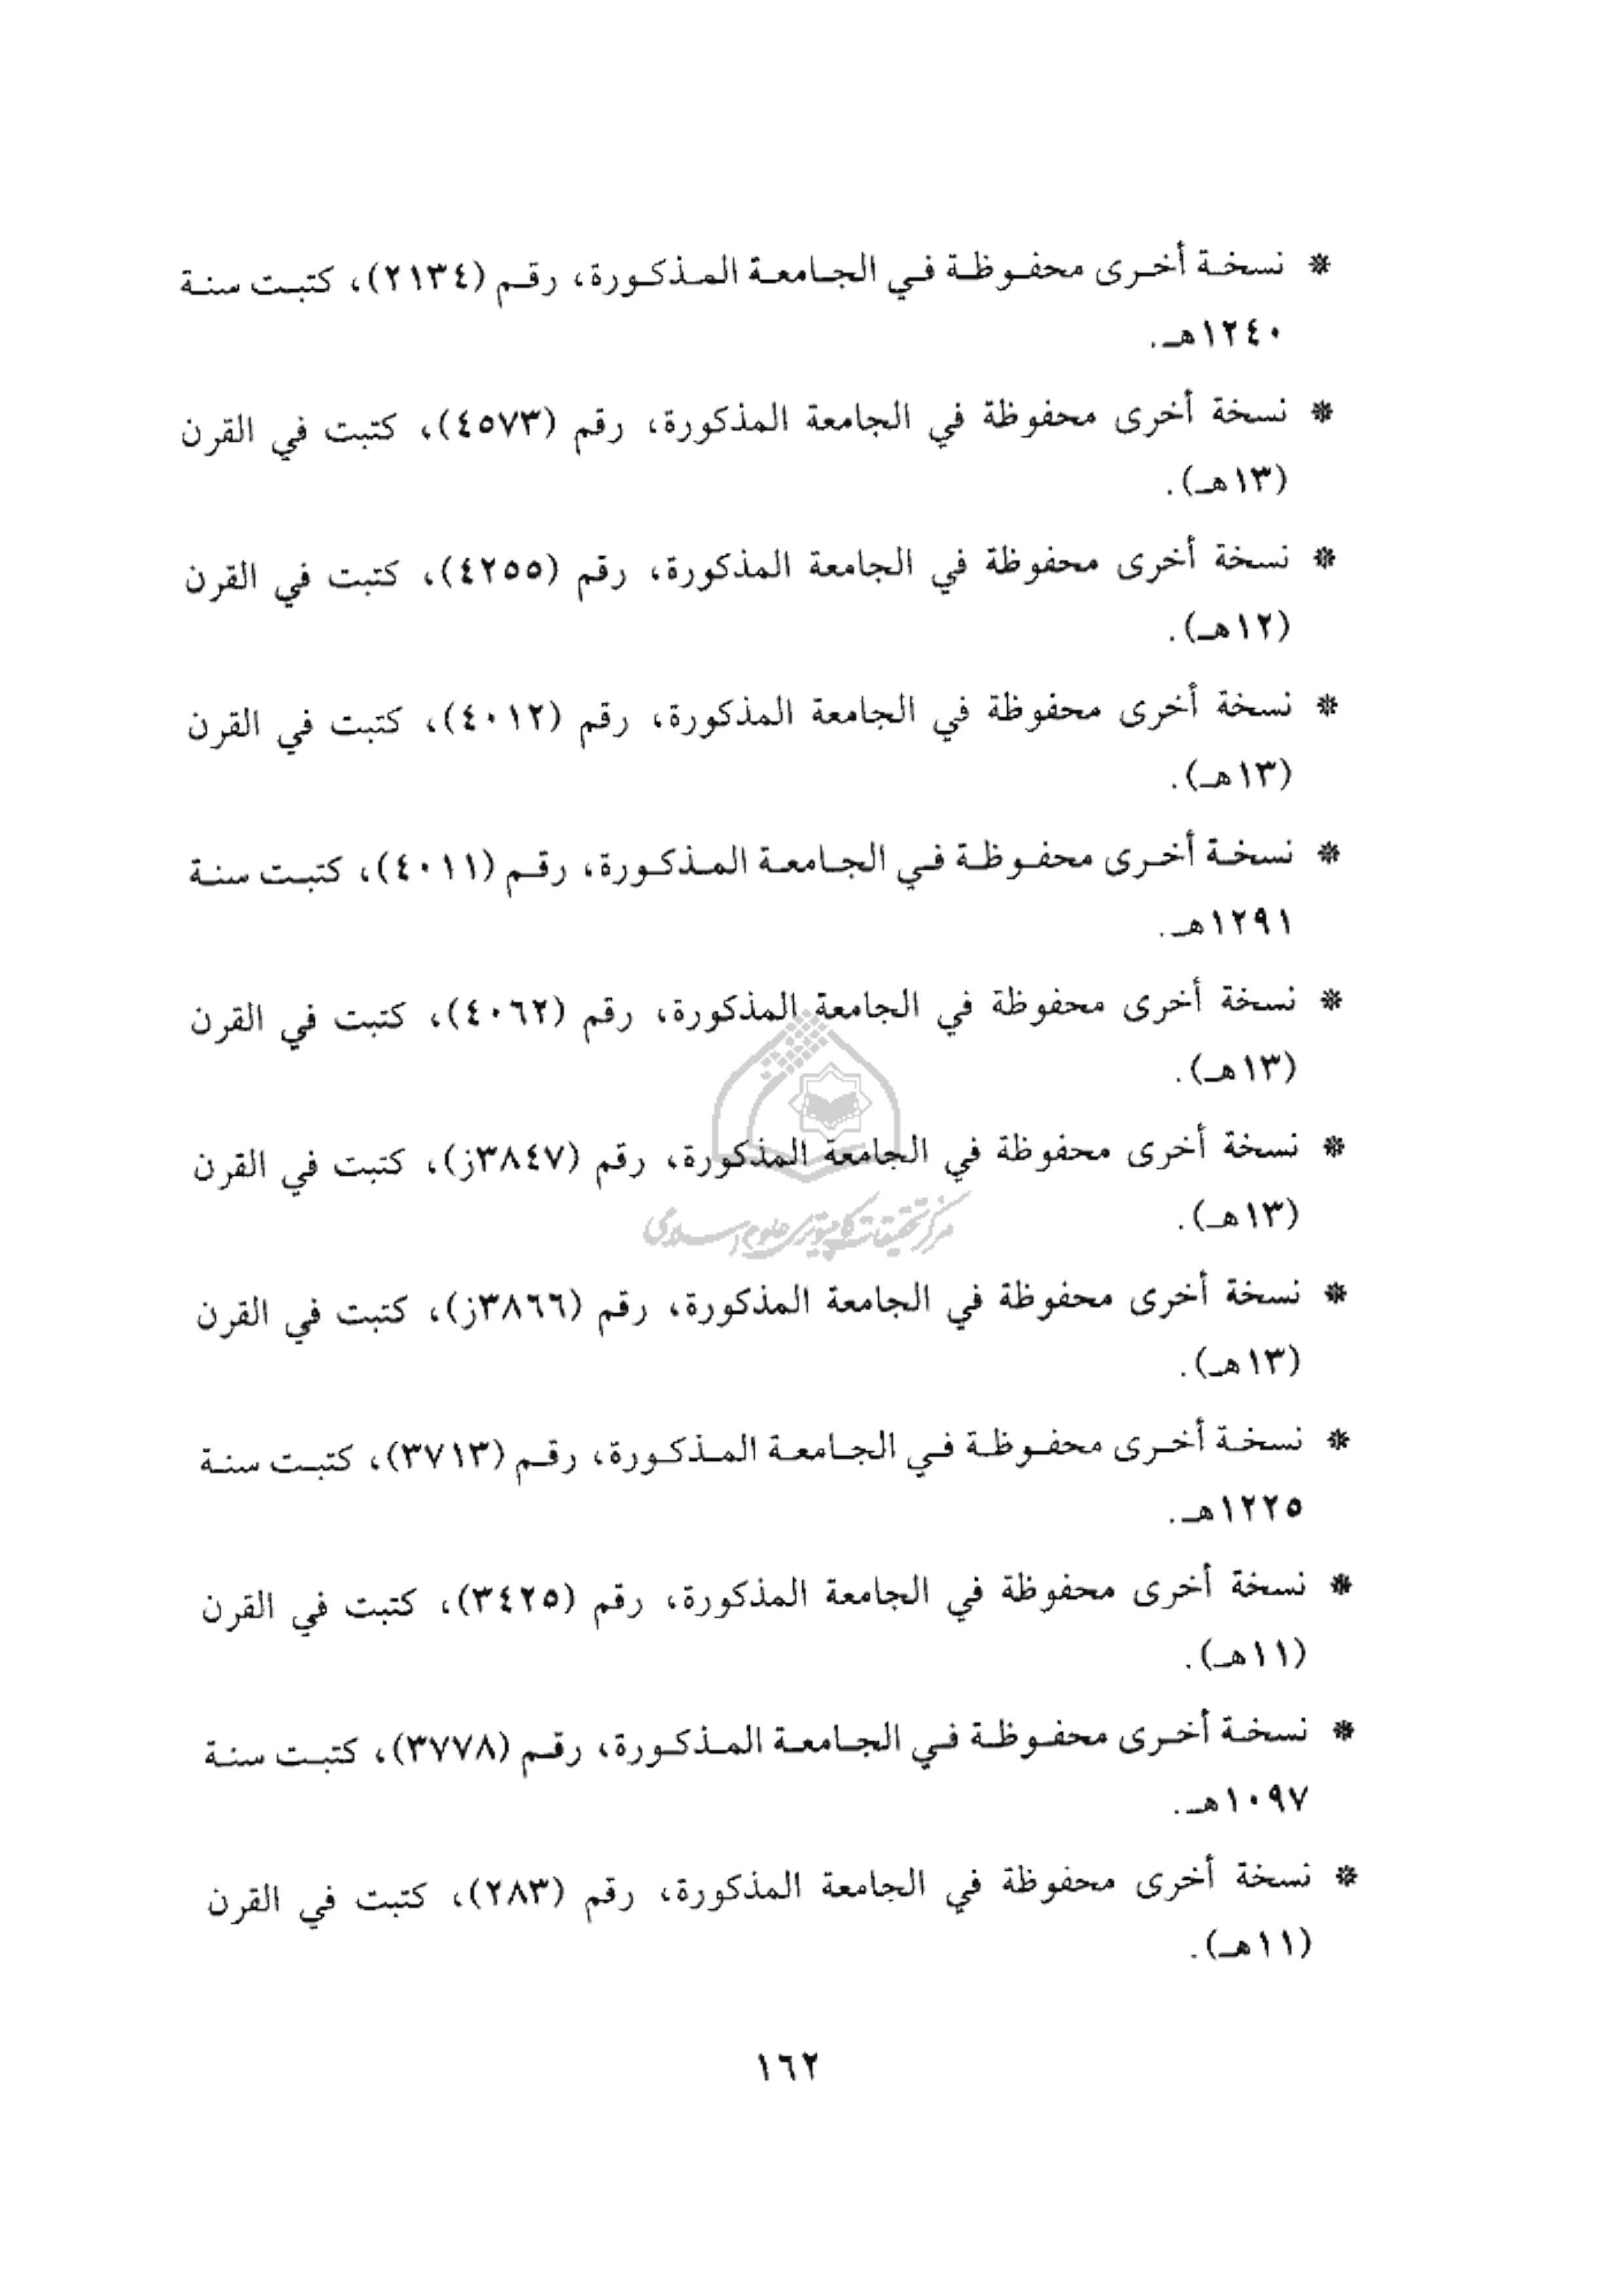 * نسخة أخرى محفوظة في الجامعة المذكورة، رقم (٢١٣٤)، كتبت سنة
١٢٤٠هـ.
* نسخة أخرى محفوظة في الجامعة المذكورة، رقم (٤٥٧٣)، كتبت في القرن
(١٣هـ).
* نسخة أخرى محفوظة في الجامعة المذكورة، رقم (٤٢٥٥)، كتبت في القرن
(١٢هـ).
* نسخة أخرى محفوظة في الجامعة المذكورة، رقم (٤٠١٢)، كتبت في القرن
(١٣هـ).
* نسخة أخرى محفوظة في الجامعة المذكورة، رقم (٤٠١١)، كتبت سنة
١٢٩١هـ.
* نسخة أخرى محفوظة في الجامعة المذكورة، رقم (٤٠٦٢)، كتبت في القرن
(١٣هـ).
* نسخة أخرى محفوظة في الجامعة المذكورة، رقم (٣٨٤٧ز)، كتبت في القرن
(١٣هـ).
مرکز تحقیقات کامپیوتری علوم اسلامی
* نسخة أخرى محفوظة في الجامعة المذكورة، رقم (٣٨٦٦ز)، كتبت في القرن
(١٣هـ).
* نسخة أخرى محفوظة في الجامعة المذكورة، رقم (٣٧١٣)، كتبت سنة
١٢٢٥هـ.
* نسخة أخرى محفوظة في الجامعة المذكورة، رقم (٣٤٢٥)، كتبت في القرن
(١١هـ).
* نسخة أخرى محفوظة في الجامعة المذكورة، رقم (٣٧٧٨)، كتبت سنة
١٠٩٧هـ.
* نسخة أخرى محفوظة في الجامعة المذكورة، رقم (٢٨٣)، كتبت في القرن
(١١هـ).
١٦٢